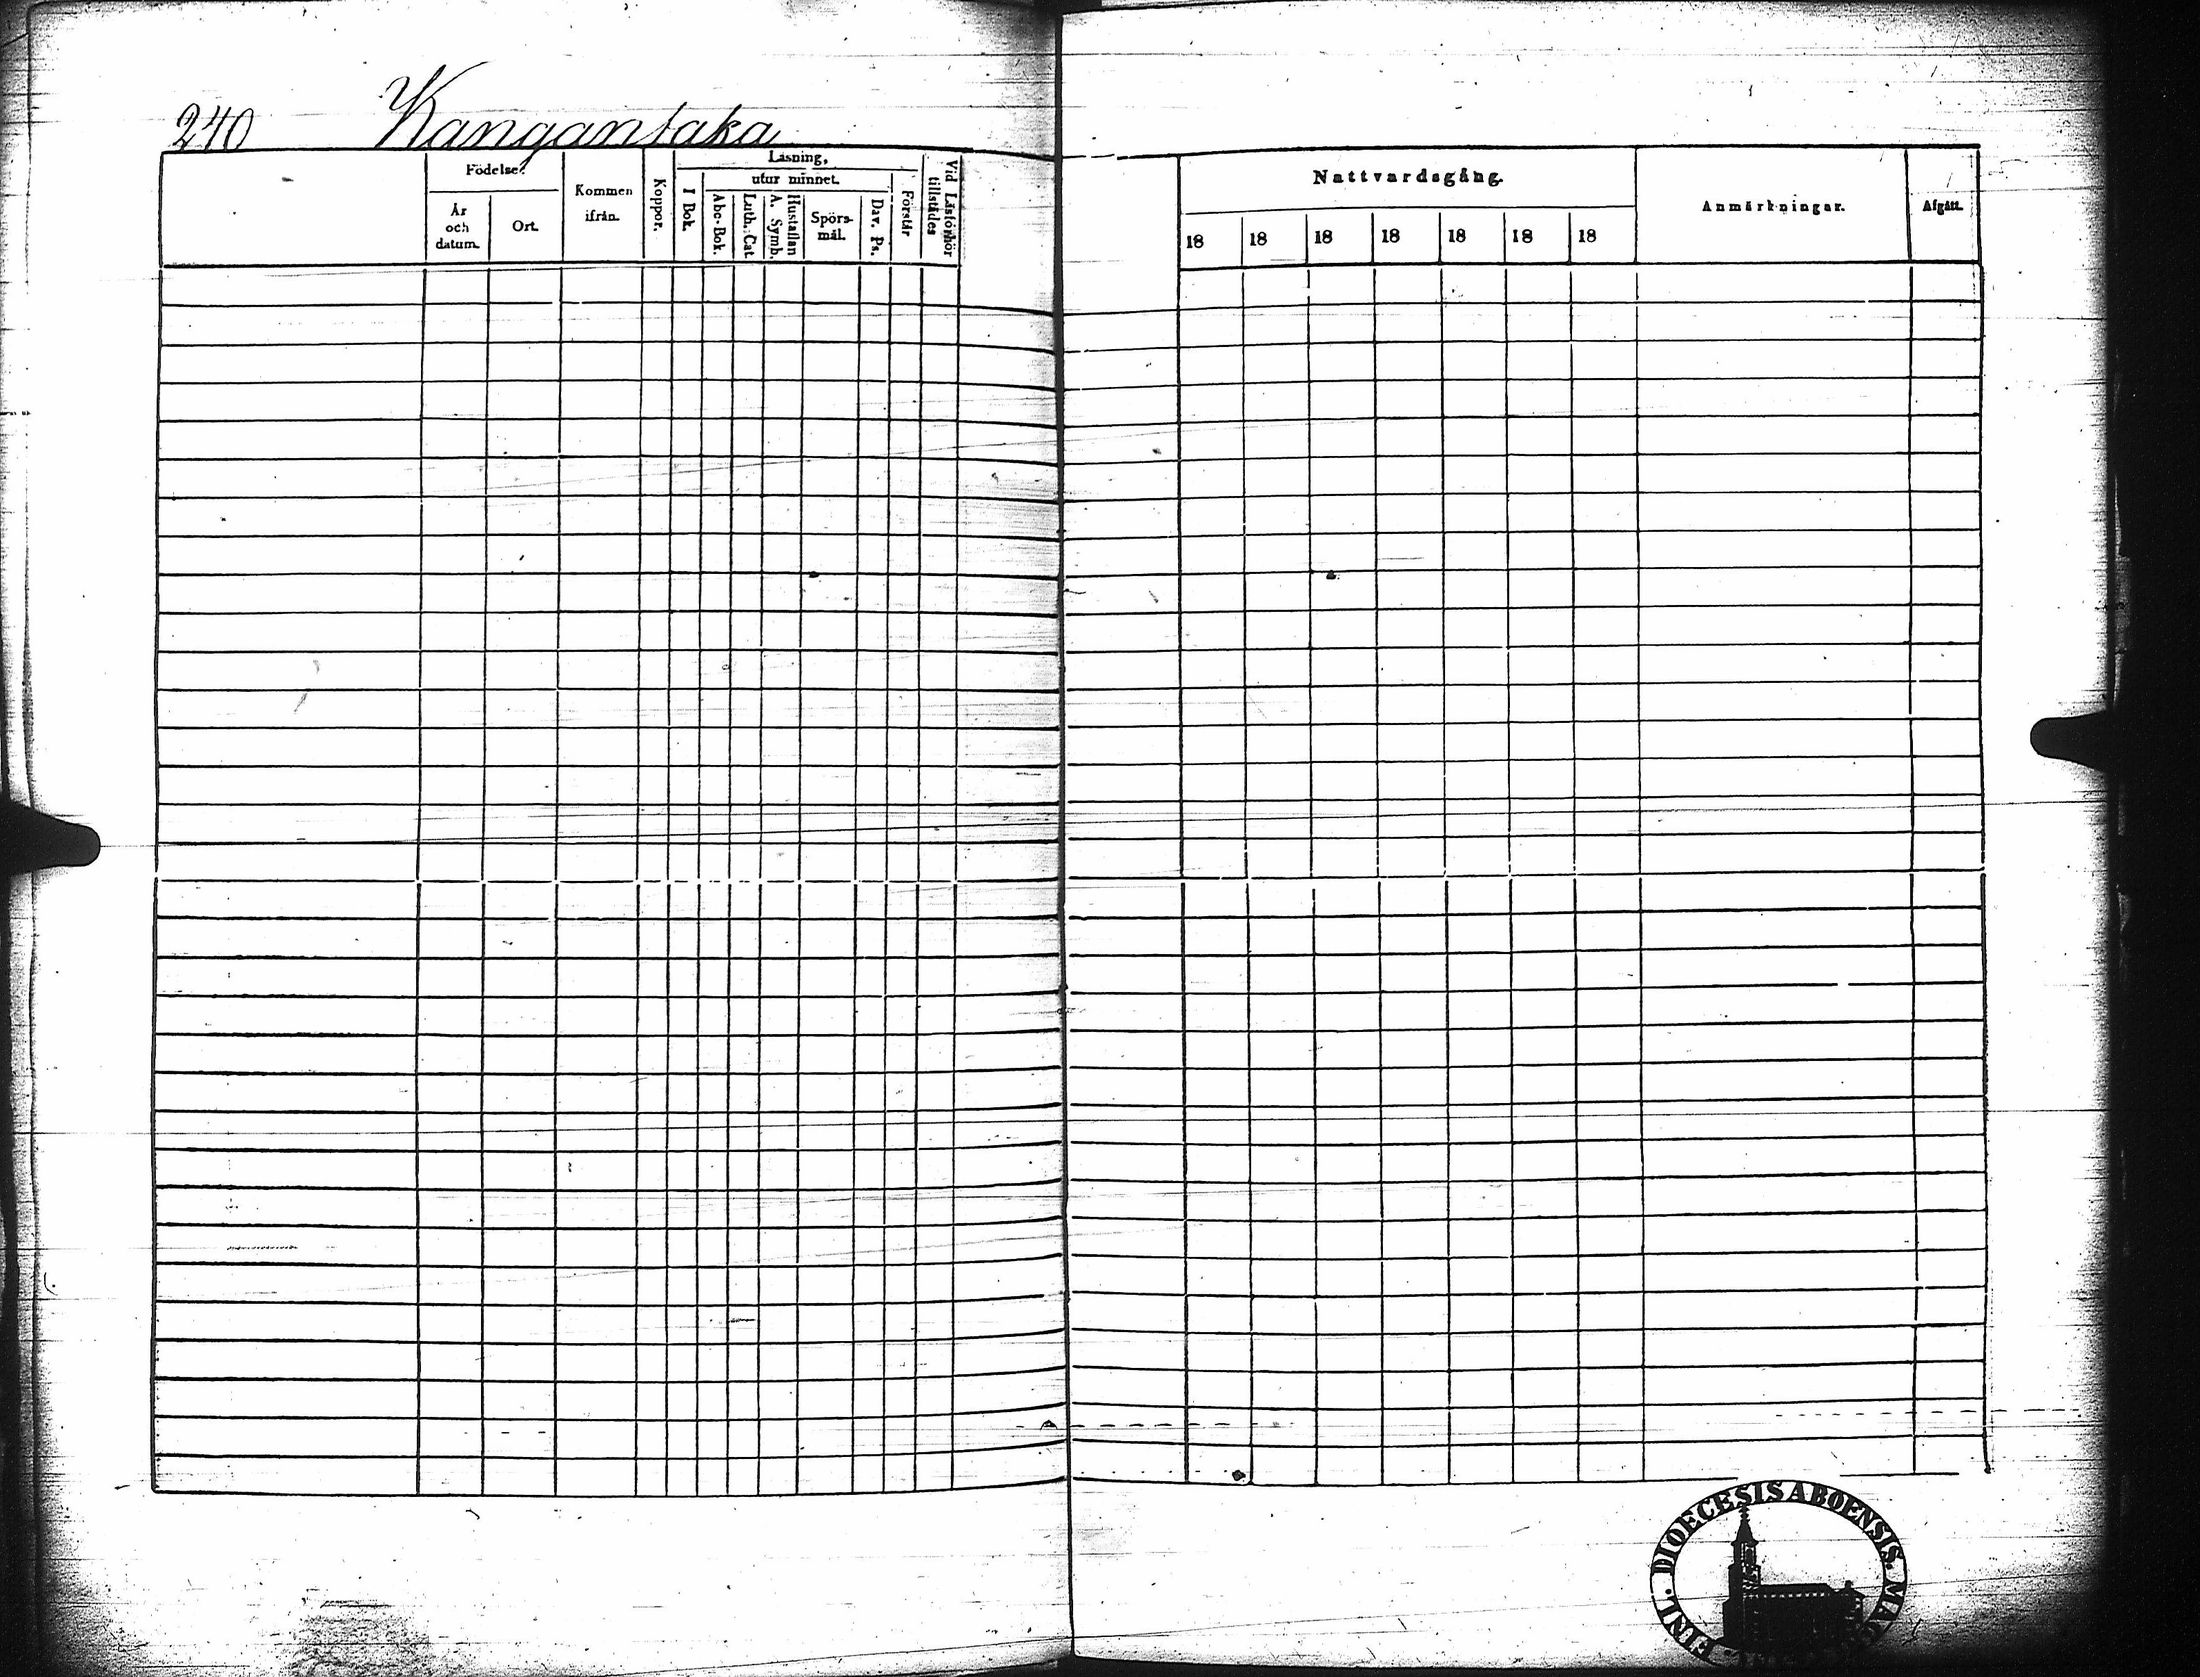 240 Kangantaka
Födelse.
År
och
datum.
Ort.
Kommen
ifrån.
Koppor.
Läsning,
utur minnet.
I Bok.
Abc-Bok.
Luth. Cat.
Hustaflan
A. Symb.
Spörs-
mål.
Dav. Ps.
Förstår
Vid Läsförhör
tillstädes
Nattvardsgång.
18 18 18 18 18 18 18
Anmärkningar.
Afgått.
FINL. DIOECESIS ABOENSIS